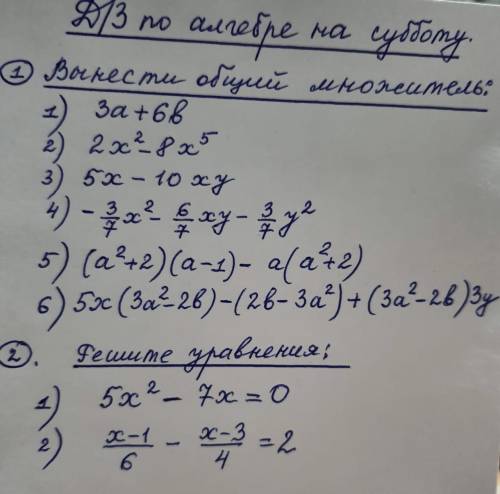 Д/З по алгебре на субботу.
① Вынести общий множитель:
1) 3a+6b
2) 2x² - 8x⁵
3) 5x - 10xy
4) - 3/7 x² - 6/7 xy - 3/7 y²
5) (a²+2)(a-1) - a(a²+2)
6) 5x(3a²-2b)-(2b-3a²)+(3a²-2b)3y
②. Решите уравнения:
1) 5x² - 7x = 0
2) x-1/6 - x-3/4 = 2